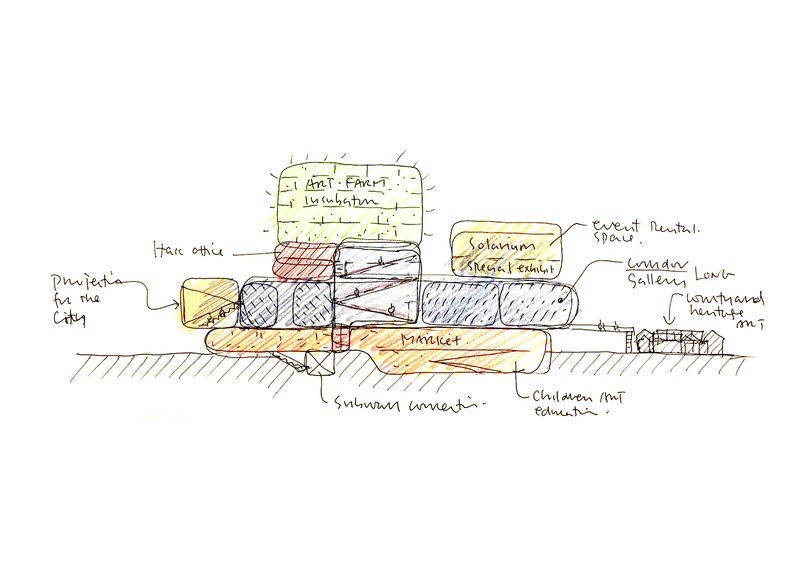 ART FARM
incubator
event rental.
space.
Solarium
special exhibit
office
corridor
Gallery LONG
projection
for the
City
courtyard
heritage
ART
MARKET
Subway connection.
Children ART
education.